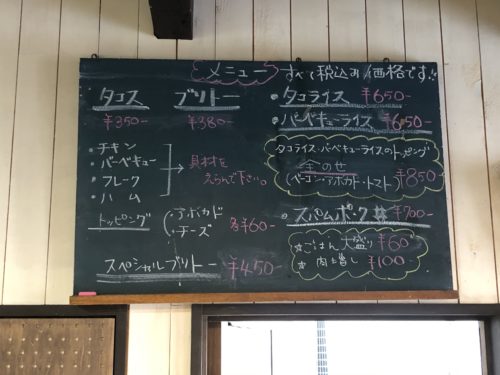 メニュー すべて税込み価格です!!
タコス ブリトー
¥350- ¥380-
・チキン
・バーベキュー
・フレーク
・ハム
具材を
えらんで下さい。
トッピング
・アボカド
・チーズ
各¥60-
スペシャルブリトー ¥450-
・タコライス ¥650-
・バーベキューライス ¥650-
タコライス・バーベキューライスのトッピング
全のせ
(ベーコン・アボカド・トマト) ¥850
・スパムポーク丼 ¥700-
*ごはん大盛り ¥60
*肉増し ¥100